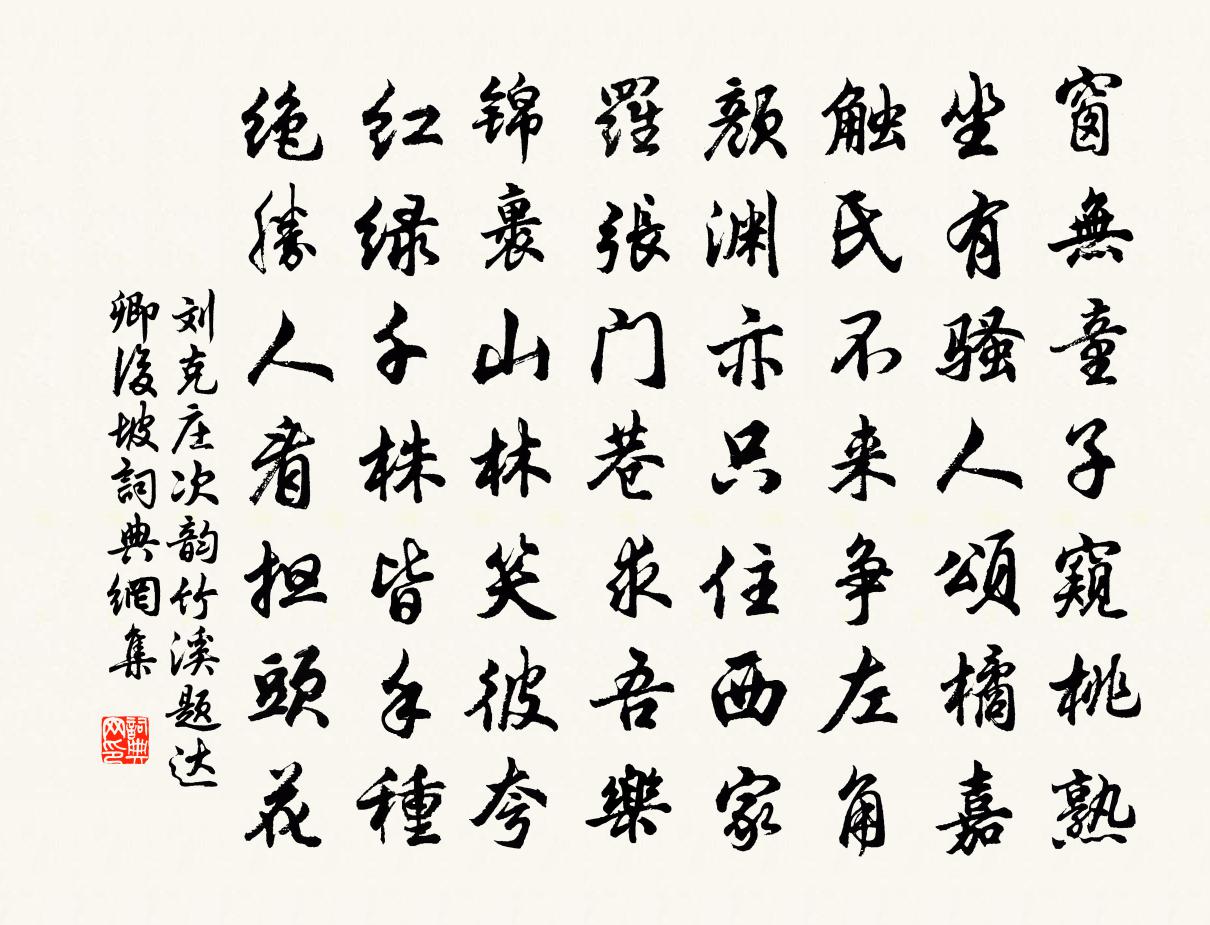 窗無童子窺桃熟
坐有骚人頌橘嘉
触氏不来争左角
顔渊亦只住西家
羅張门巷求吾樂
锦裹山林笑彼夸
红绿千株皆手種
绝勝人看担頭花
刘克庄次韵竹溪题达
卿後坡詞典網集
詞典网印